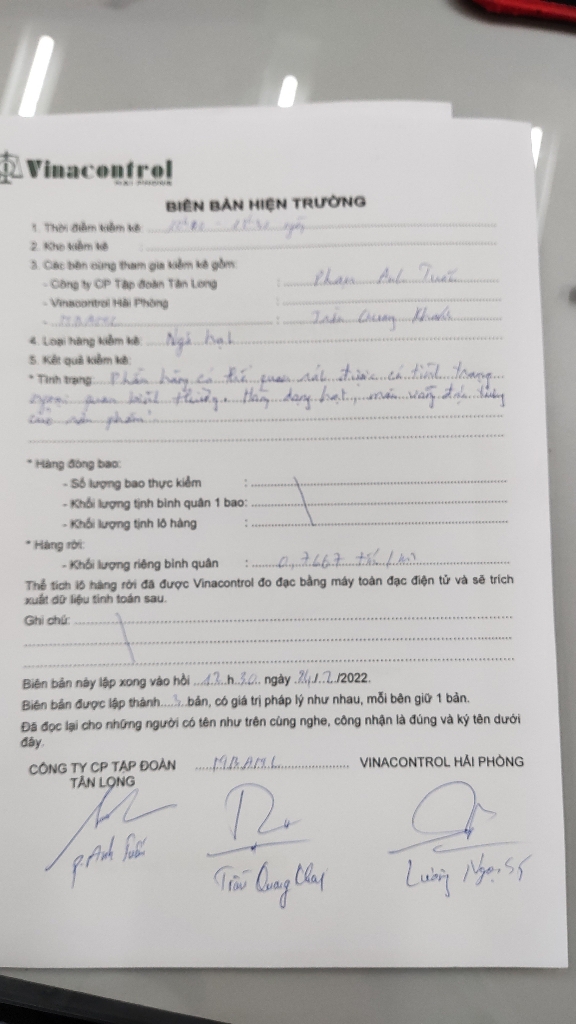 Vinacontrol
BIÊN BẢN HIỆN TRƯỜNG
1. Thời điểm kiểm kê:
2. Kho kiểm kê :
3. Các bên cùng tham gia kiểm kê gồm:
- Công ty CP Tập đoàn Tân Long : Phạm Anh Tuấn
- Vinacontrol Hải Phòng :
- MBAML : Trần Quang
4. Loại hàng kiểm kê: Ngô hạt
5. Kết quả kiểm kê:
* Tình trạng: Phần hàng có thể quan sát được có tình trạng
ngoại quan bình thường. Hàng dạng hạt, màu vàng đặc trưng
của sản phẩm.
* Hàng đóng bao:
- Số lượng bao thực kiểm :
- Khối lượng tịnh bình quân 1 bao:
- Khối lượng tịnh lô hàng :
* Hàng rời:
- Khối lượng riêng bình quân : 0,7667 tấn/m3
Thể tích lô hàng rời đã được Vinacontrol đo đạc bằng máy toàn đạc điện tử và sẽ trích
xuất dữ liệu tính toán sau.
Ghi chú:
Biên bản này lập xong vào hồi 12 h 30 ngày 24/2/2022.
Biên bản được lập thành 3 bản, có giá trị pháp lý như nhau, mỗi bên giữ 1 bản.
Đã đọc lại cho những người có tên như trên cùng nghe, công nhận là đúng và ký tên dưới
đây.
CÔNG TY CP TẬP ĐOÀN MBAML VINACONTROL HẢI PHÒNG
TÂN LONG
P. Anh Tuấn
Trần Quang
Lương Ngọc